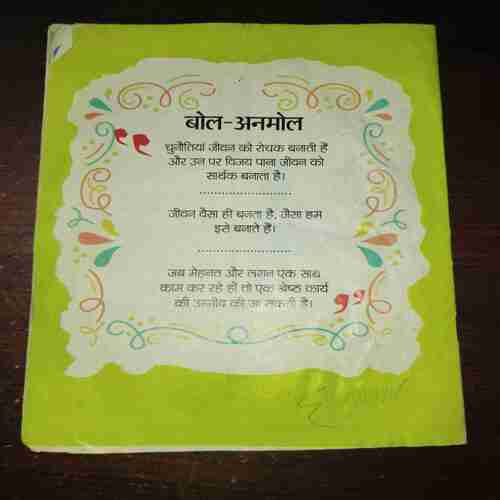 बोल-अनमोल
चुनौतियां जीवन को रोचक बनाती हैं
और उन पर विजय पाना जीवन को
सार्थक बनाता है।
जीवन वैसा ही बनता है, जैसा हम
इसे बनाते हैं।
जब मेहनत और लगन एक साथ
काम कर रहे हों तो एक श्रेष्ठ कार्य
की उम्मीद की जा सकती है।